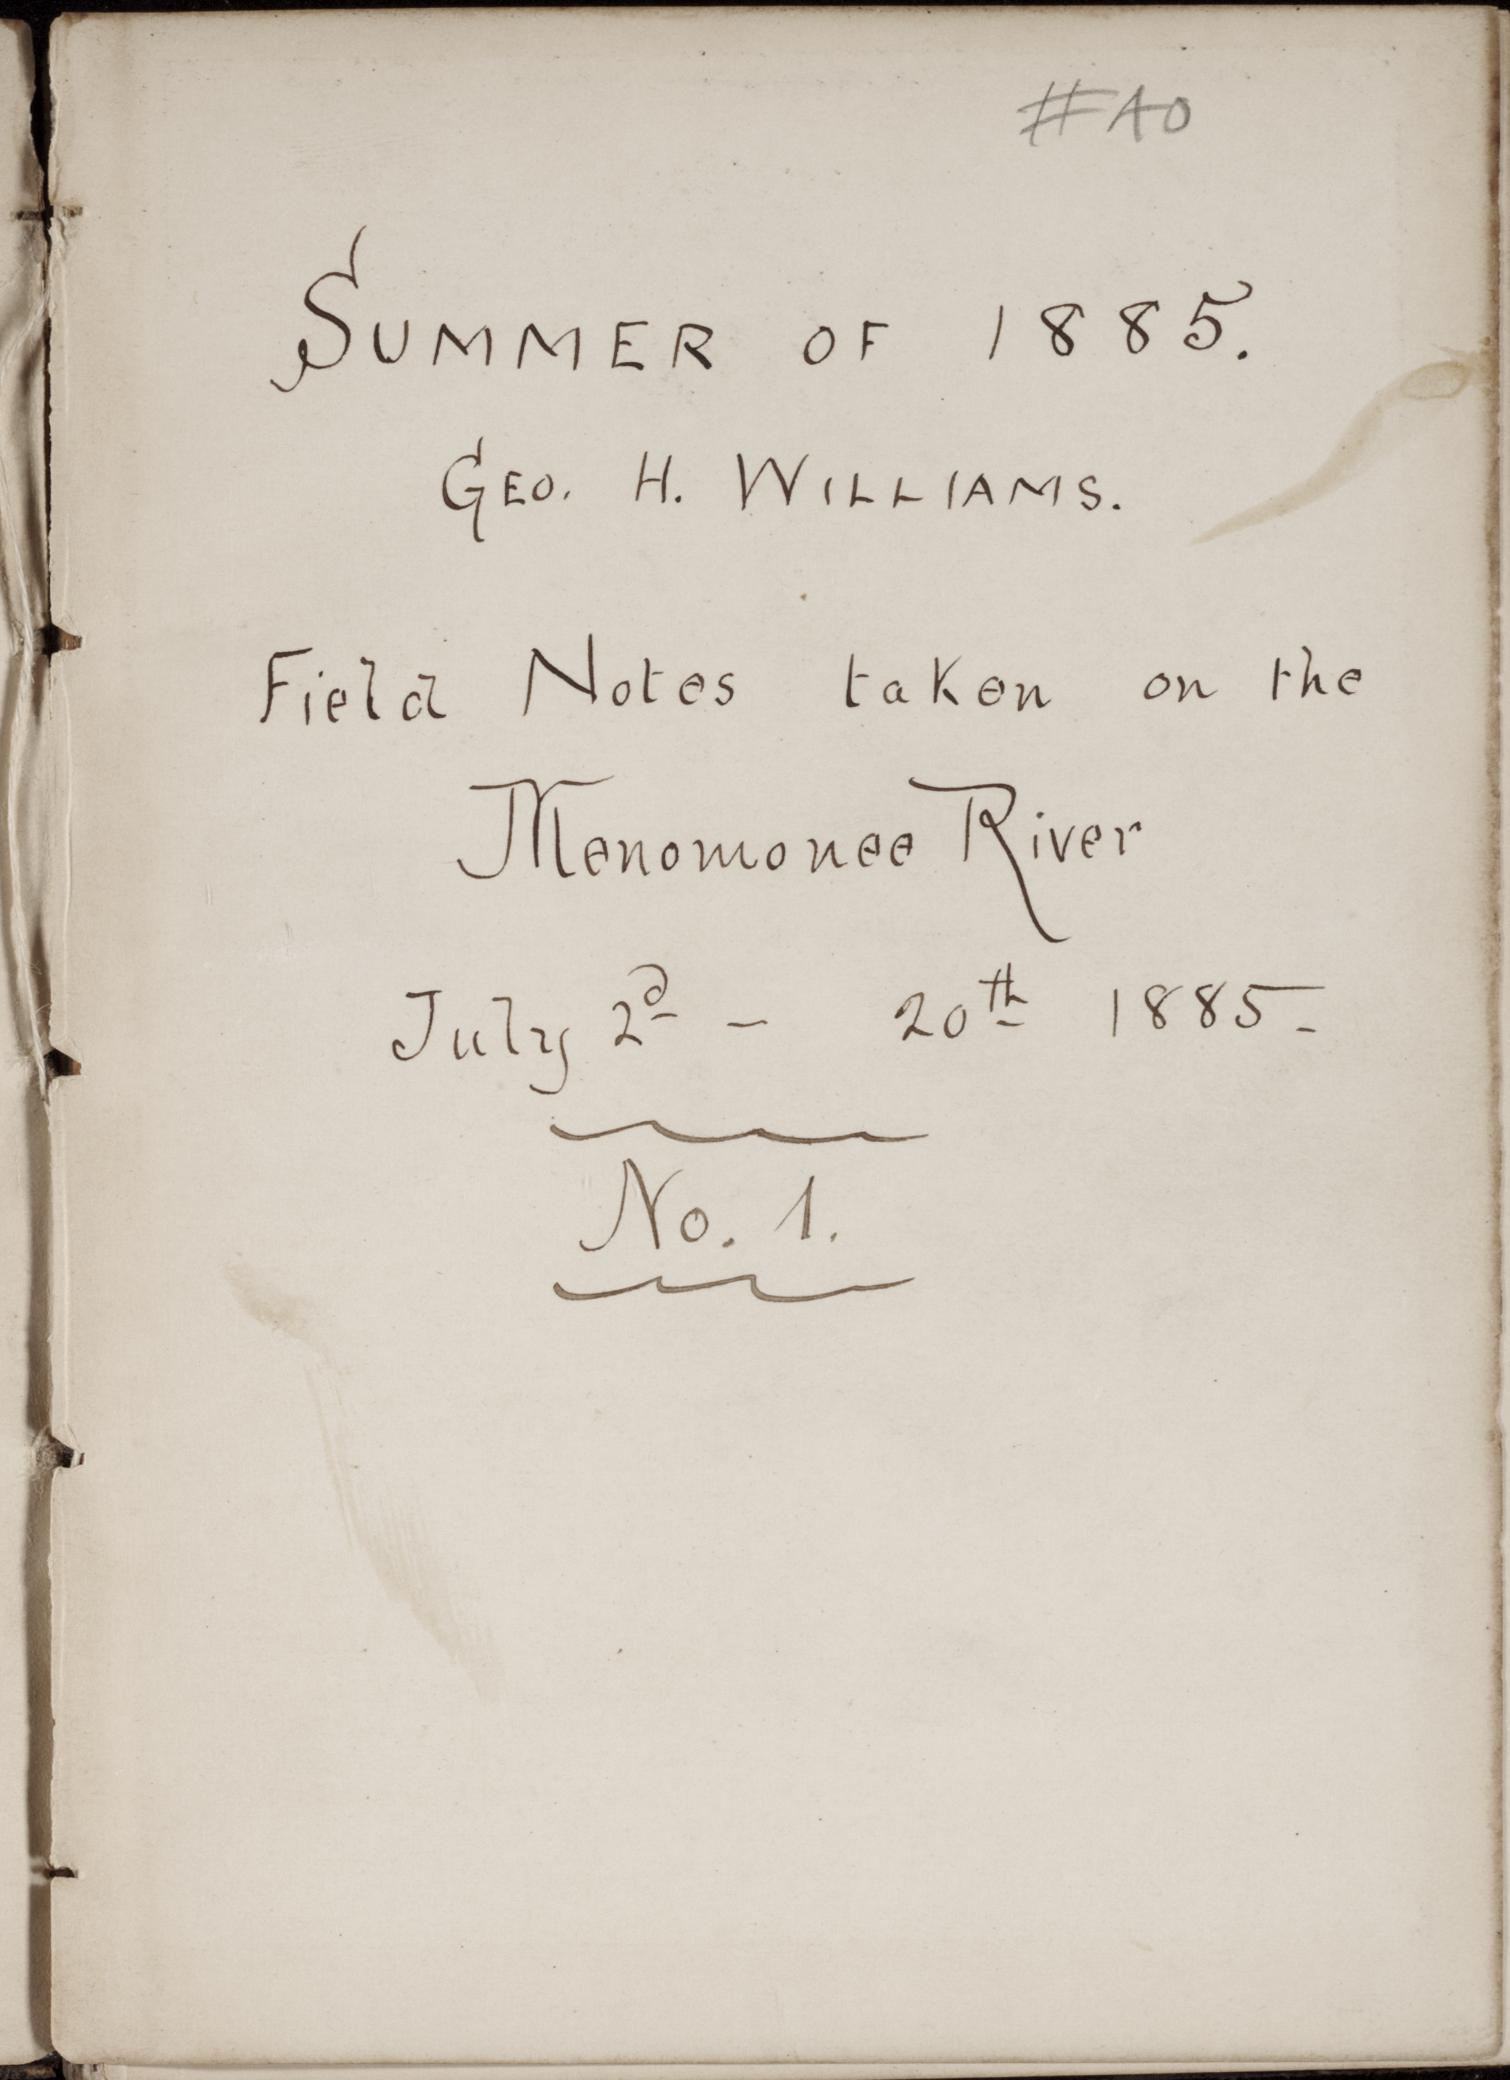 #A0
SUMMER OF 1885.
GEO. H. WILLIAMS.
Field Notes taken on the
Menomonee River
July 2d - 20th 1885-
No. 1.